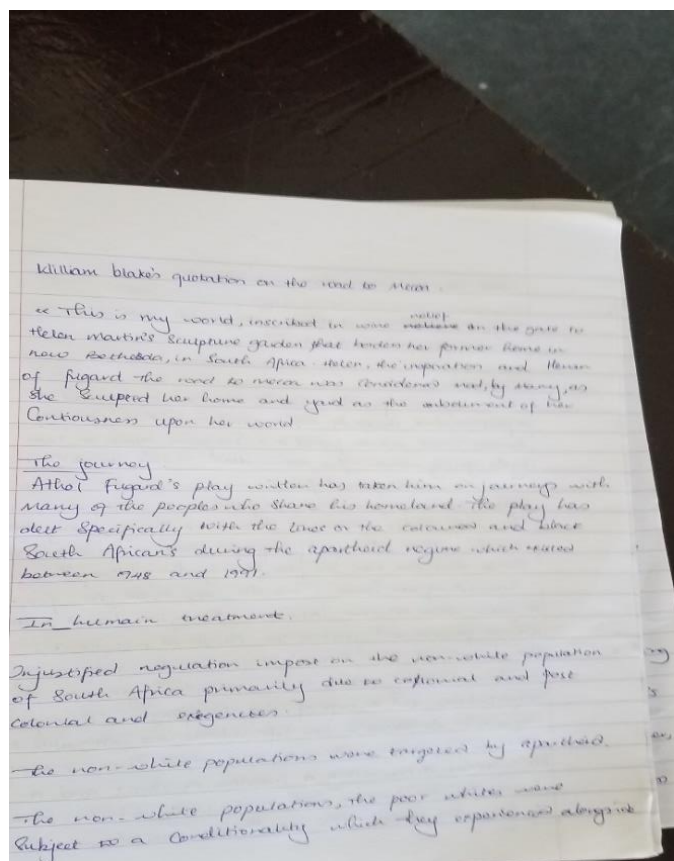 William blake's quotation on the road to Mecca.
" This is my world, inscribed in some relief on the gate to
Helen Martin's Sculpture garden that borders her former home in
new Bethesda, in South Africa. Helen, the inspiration and Heroin
of fugard the road to mecca was considered mad, by many, as
she Sculpted her home and yard as the of her
Contiousness upon her world
The journey
Athol Fugard's play written has taken him on journeys with
Many of the peoples who Share his homeland. The play has
delt Specifically with the lives on the coloured and black
South African's during the apartheid regime which existed
between 1948 and 1991.
In_humain treatment.
Injustified regulation impose on the non-white population
of South Africa primarily due to colonial and post
colonial and exegencies.
The non-white populations were targeted by apartheid.
The non-white populations, the poor whites were
Subject to a Conditionality which they experienced alongside